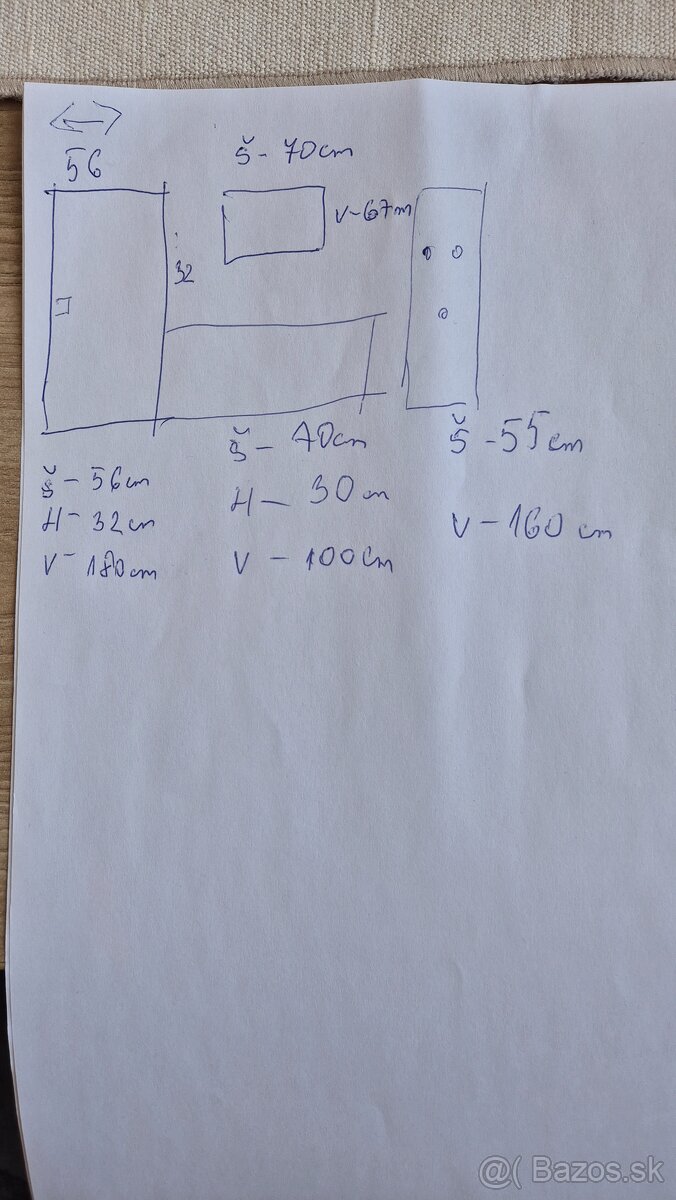 56
Š - 70cm
V-67m
32
Š - 56cm
H - 32cm
V - 180cm
Š - 70cm
H - 30cm
V - 100cm
Š - 55cm
V - 160 cm
@( Bazos.sk